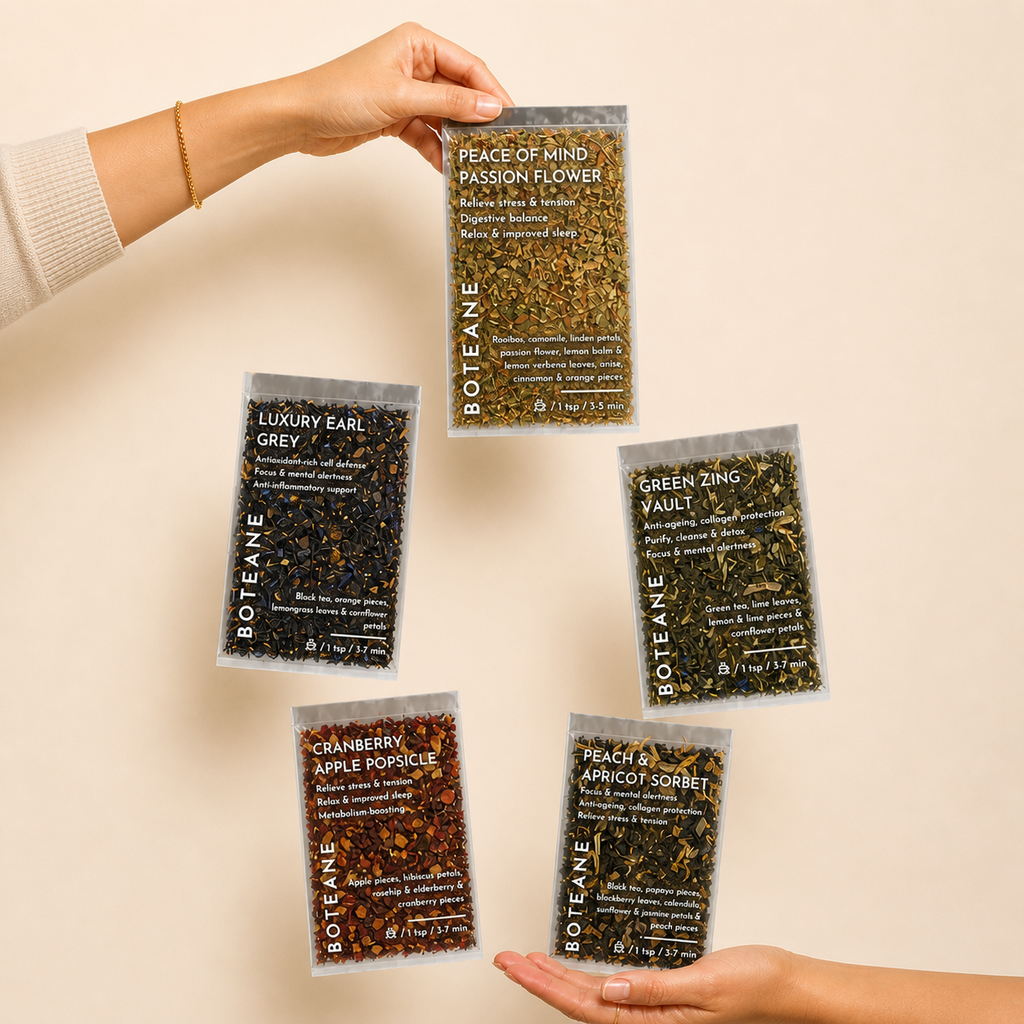 PEACE OF MIND
PASSION FLOWER
Relieve stress & tension
Digestive balance
Relax & improved sleep.
BOTEANE
Rooibos, camomile, linden petals,
passion flower, lemon balm &
lemon verbena leaves, anise,
cinnamon & orange pieces
/ 1 tsp / 3-5 min
LUXURY EARL
GREY
Antioxidant-rich cell defense
Focus & mental alertness
Anti-inflammatory support
BOTEANE
Black tea, orange pieces,
lemongrass leaves & cornflower
petals
/ 1 tsp / 3-7 min
GREEN ZING
VAULT
Anti-ageing, collagen protection
Purify, cleanse & detox
Focus & mental alertness
BOTEANE
Green tea, lime leaves,
lemon & lime pieces &
cornflower petals
/ 1 tsp / 3-7 min
CRANBERRY
APPLE POPSICLE
Relieve stress & tension
Relax & improved sleep
Metabolism-boosting
BOTEANE
Apple pieces, hibiscus petals,
rosehip & elderberry &
cranberry pieces
/ 1 tsp / 3-7 min
PEACH &
APRICOT SORBET
Focus & mental alertness
Anti-ageing, collagen protection
Relieve stress & tension
BOTEANE
Black tea, papaya pieces,
blackberry leaves, calendula,
sunflower & jasmine petals &
peach pieces
/ 1 tsp / 3-7 min